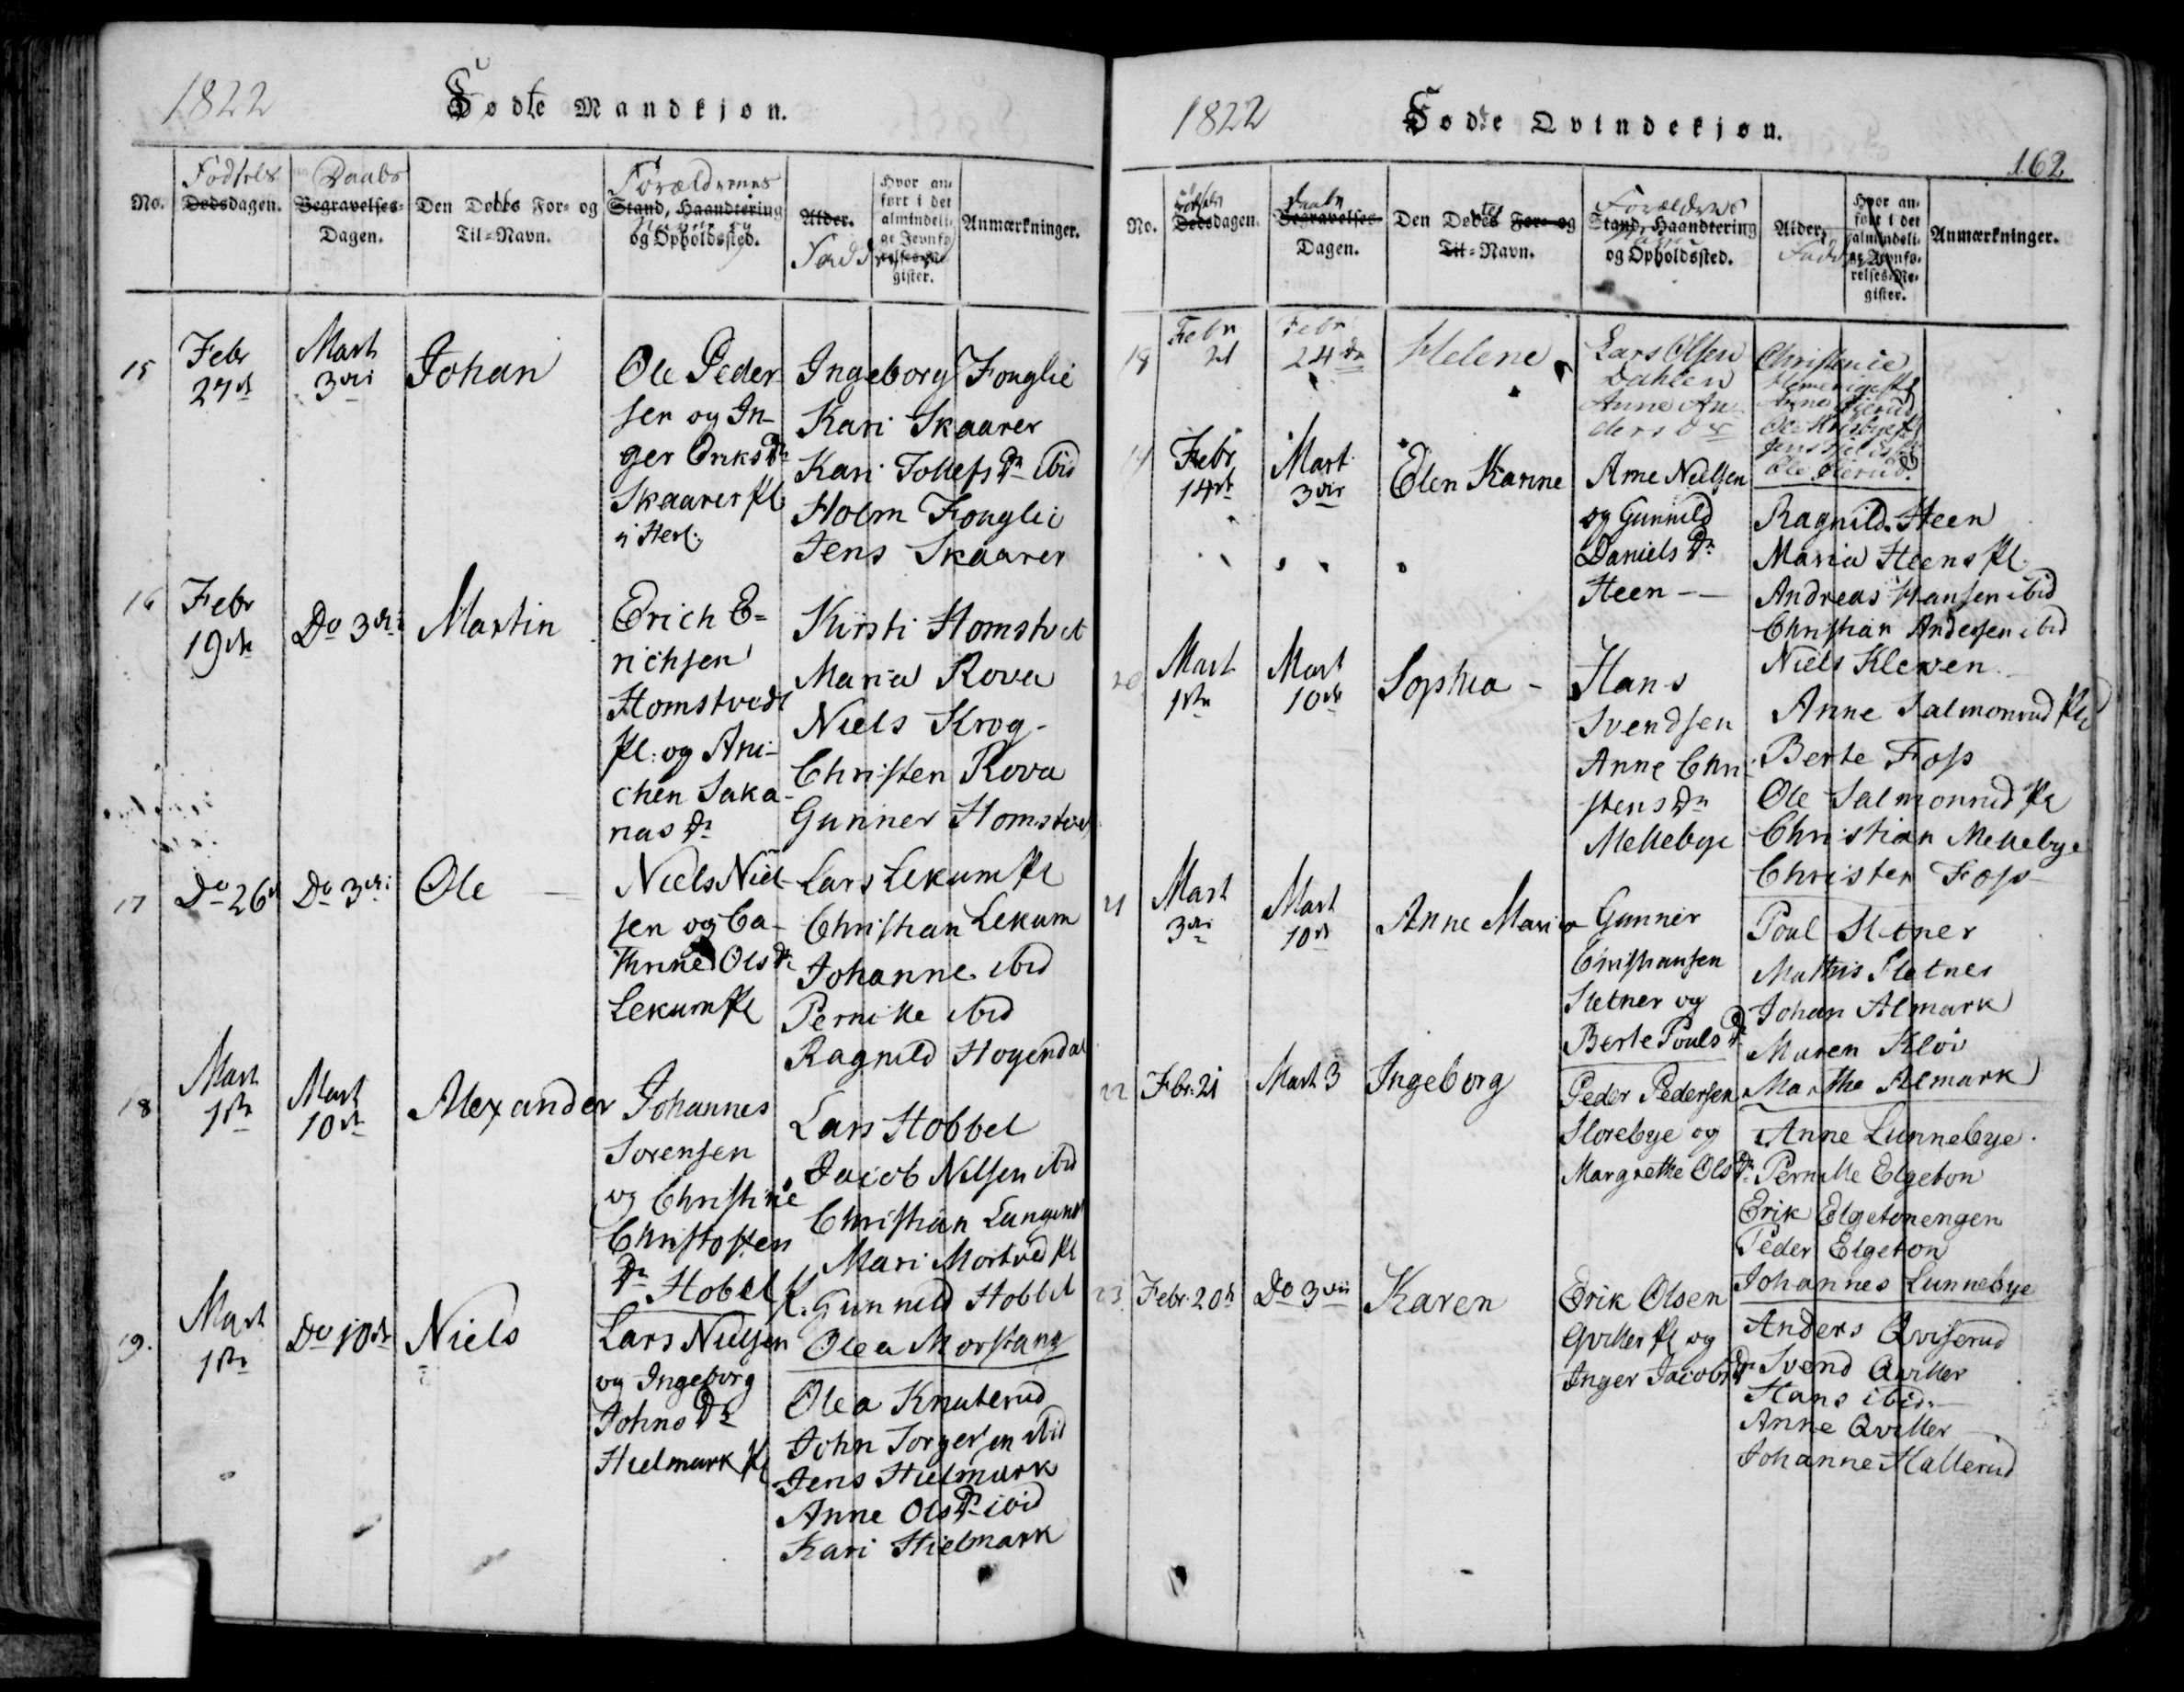 1822
Födte Mandkjøn.
No.
Födsels
Dødsdagen.
Daabs
Begravelses-
Dagen.
Den Døbte For- og
Til-Navn.
Forældrenes
Stand, Haandtering
Navn og
og Opholdssted.
Alder.
Faddere
Hvor an-
ført i det
almindeli-
ge Jevnfø-
relses-Re-
gister.
Anmærkninger.
15
Febr
27de
Mart
3die
Johan
Ole Peder
sen og In-
ger Eriks Dr
Skaarer Pl
i Herl.
Ingeborg Fonglie
Kari Skaarer
Kari Tollefs Dr ibid
Holm Fonglie
Jens Skaarer
16
Febr
19de
Do 3die
Martin
Erich E=
richsen
Homstvedt
Pl: og Ani-
chen Saka-
rias Dr
Kirsti Homstvet
Maria Rova
Niels Krog-
Christen Rova
Gunner Homstvet
17
Do 26de
Do 3die
Ole
Niels Niel-
sen og Ca-
thrine Ols Dr
Lekum Pl
Lars Lekum Pl
Christian Lekum
Johanne ibid
Pernille ibid
Ragnild Høgendal
18
Mart
1ste
Mart
10de
Alexander
Johannes
Sorensen
og Christine
Christofsen
Dr Hobel Pl.
Lars Hobbel
Jacob Nilsen ibid
Christian Langend
Mari Mortved Pl
Gunnild Hobbel
Olea Morstang
19.
Mart
1ste
Do 10de
Niels
Lars Nielsen
og Ingeborg
Johns Dr
Hielmark Pl
Olea Knuterud
John Torgersen ibid
Jens Hielmark
Anne Ols Dr ibid
Kari Hielmark
1822
Födte Qvindekjøn.
162
No.
Födsels
Dødsdagen.
Daabs
Begravelses-
Dagen.
Den Døbtes For- og
Til-Navn.
Forældrenes
Stand, Haandtering
Navn
og Opholdssted.
Alder.
Faddere
Hvor an-
ført i det
almindeli-
ge Jevnfø-
relses-Re-
gister.
Anmærkninger.
18
Febr
21
Febr
24de
Helene
Lars Olsen
Dahlen
Anne An-
ders Dr
Christence
Anne
Ole
Jens
Ole
19
Febr
14de
Mart
3die
Elen Karine
Arne Nielsen
og Gunnild
Daniels Dr
Heen -
Ragnild Heen
Maria Heens Pl.
Andreas Hansen ibid
Christian Andersen ibid
Niels Kleven
20
Mart
1ste
Mart
10de
Sophia -
Hans
Svendsen
Anne Chri-
stens Dr
Mellebye
Anne Salmonrud Pl
Berte Foss
Ole Salmonrud Pl
Christian Mellebye
Christen Foss
21
Mart
3die
Mart
10de
Anne Maria
Gunner
Christiansen
Sletner og
Berte Pouls Dr
Poul Sletner
Mathis Sletner
Johan Almark
Maren Kløv
Marthe Almark
22
Febr. 21
Mart 3
Ingeborg
Peder Pedersen
Slorebye og
Margrethe Ols Dr
Anne Lunnebye.
Pernille Elgeton
Erik Elgetonengen
Peder Elgeton
Johannes Lunnebye
23
Febr. 20de
Do 3die
Karen
Erik Olsen
Qviller Pl og
Inger Jacobs Dr
Anders Qviserud
Svend Qviller
Hans ibid.
Anne Qviller
Johanne Hallerud